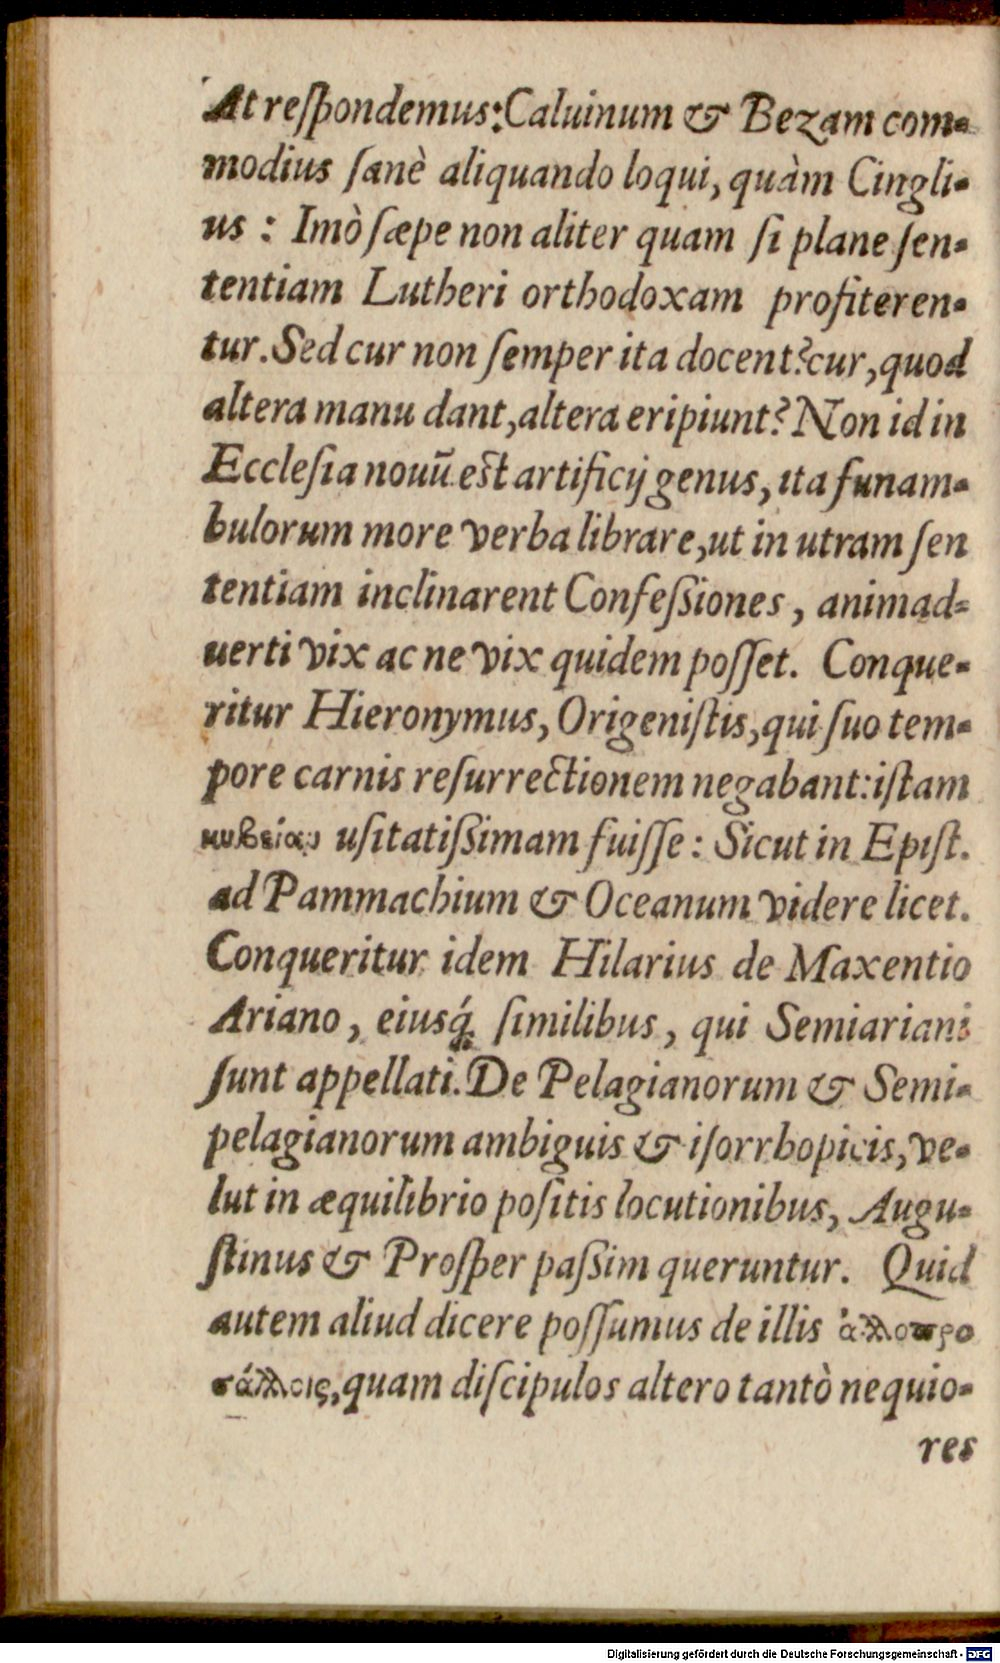 At reſpondemus: Caluinum & Bezam com-
modius ſanè aliquando loqui, quàm Cingli-
us : Imò ſæpe non aliter quam ſi plane ſen-
tentiam Lutheri orthodoxam profiteren-
tur. Sed cur non ſemper ita docent? cur, quod
altera manu dant, altera eripiunt? Non id in
Eccleſia nouũ est artificij genus, ita funam-
bulorum more verba librare, ut in utram ſen
tentiam inclinarent Confeßiones, animad-
uerti vix ac ne vix quidem poſſet. Conque-
ritur Hieronymus, Origeniſtis, qui ſuo tem-
pore carnis reſurrectionem negabant: iſtam
κυβείαν uſitatißimam fuiſſe : Sicut in Epiſt.
ad Pammachium & Oceanum videre licet.
Conqueritur idem Hilarius de Maxentio
Ariano, eiusq́; ſimilibus, qui Semiariani
ſunt appellati. De Pelagianorum & Semi-
pelagianorum ambiguis & iſorrhopicis, ve-
lut in æquilibrio poſitis locutionibus, Augu-
ſtinus & Proſper paßim queruntur. Quid
autem aliud dicere poſſumus de illis ἀλλοπρο
σάλλοις, quam diſcipulos altero tantò nequio-
res
Digitalisierung gefördert durch die Deutsche Forschungsgemeinschaft - DFG